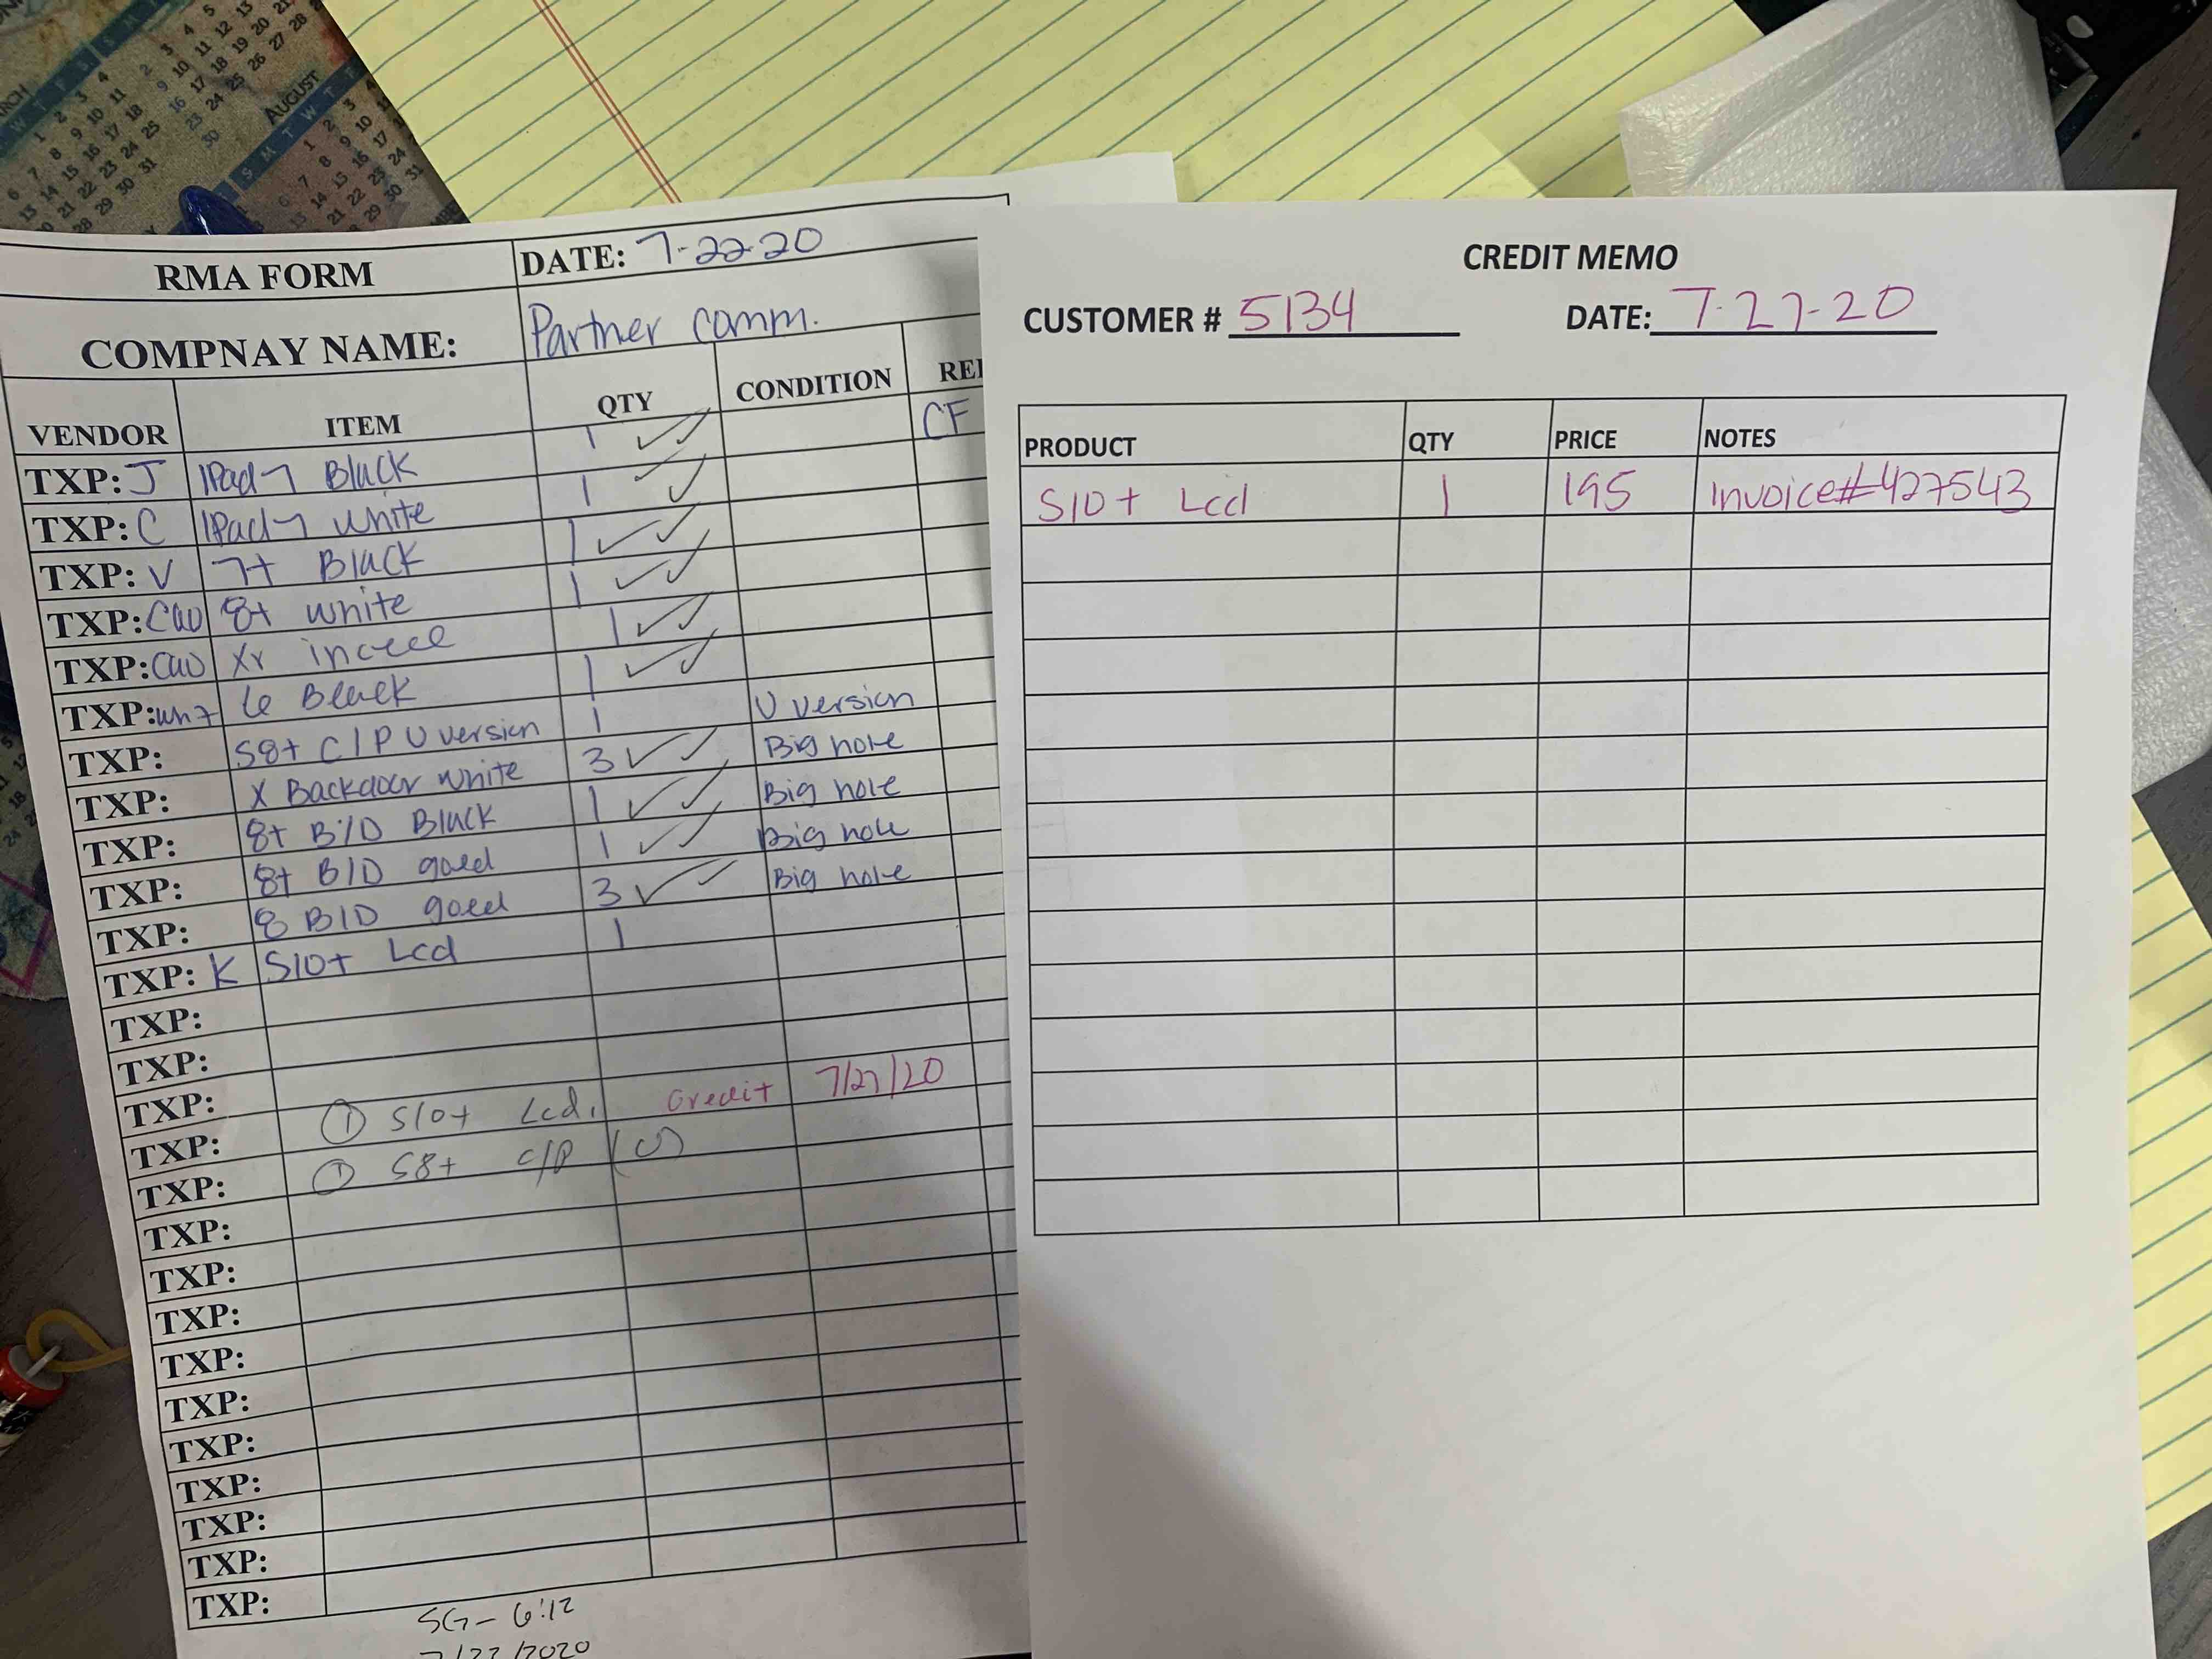 RMA FORM DATE: 7-22-20
COMPNAY NAME: Partner comm.
VENDOR ITEM QTY CONDITION
TXP: J IPad 7 Black 1 CF
TXP: C IPad 7 white 1
TXP: V 7+ Black 1
TXP: CW 8+ white 1
TXP: CW Xr incell 1
TXP: 6 Black 1
TXP: S8+ C/P U version 1 U version
TXP: X Backdoor white 3 Big hole
TXP: 8+ B/D Black 1 Big hole
TXP: 8+ B/D gold 1 Big hole
TXP: 8 B/D gold 3 Big hole
TXP: K S10+ Lcd 1
TXP:
TXP:
TXP: Credit 7/27/20
TXP: ① S10+ Lcd.
TXP: ① S8+ C/P (U)
TXP:
TXP:
TXP:
TXP:
TXP:
TXP:
TXP:
TXP:
TXP:
SG - 6:12
7/27/2020
CREDIT MEMO
CUSTOMER # 5134 DATE: 7-27-20
PRODUCT QTY PRICE NOTES
S10+ Lcd 1 195 Invoice# 427543
AUGUST